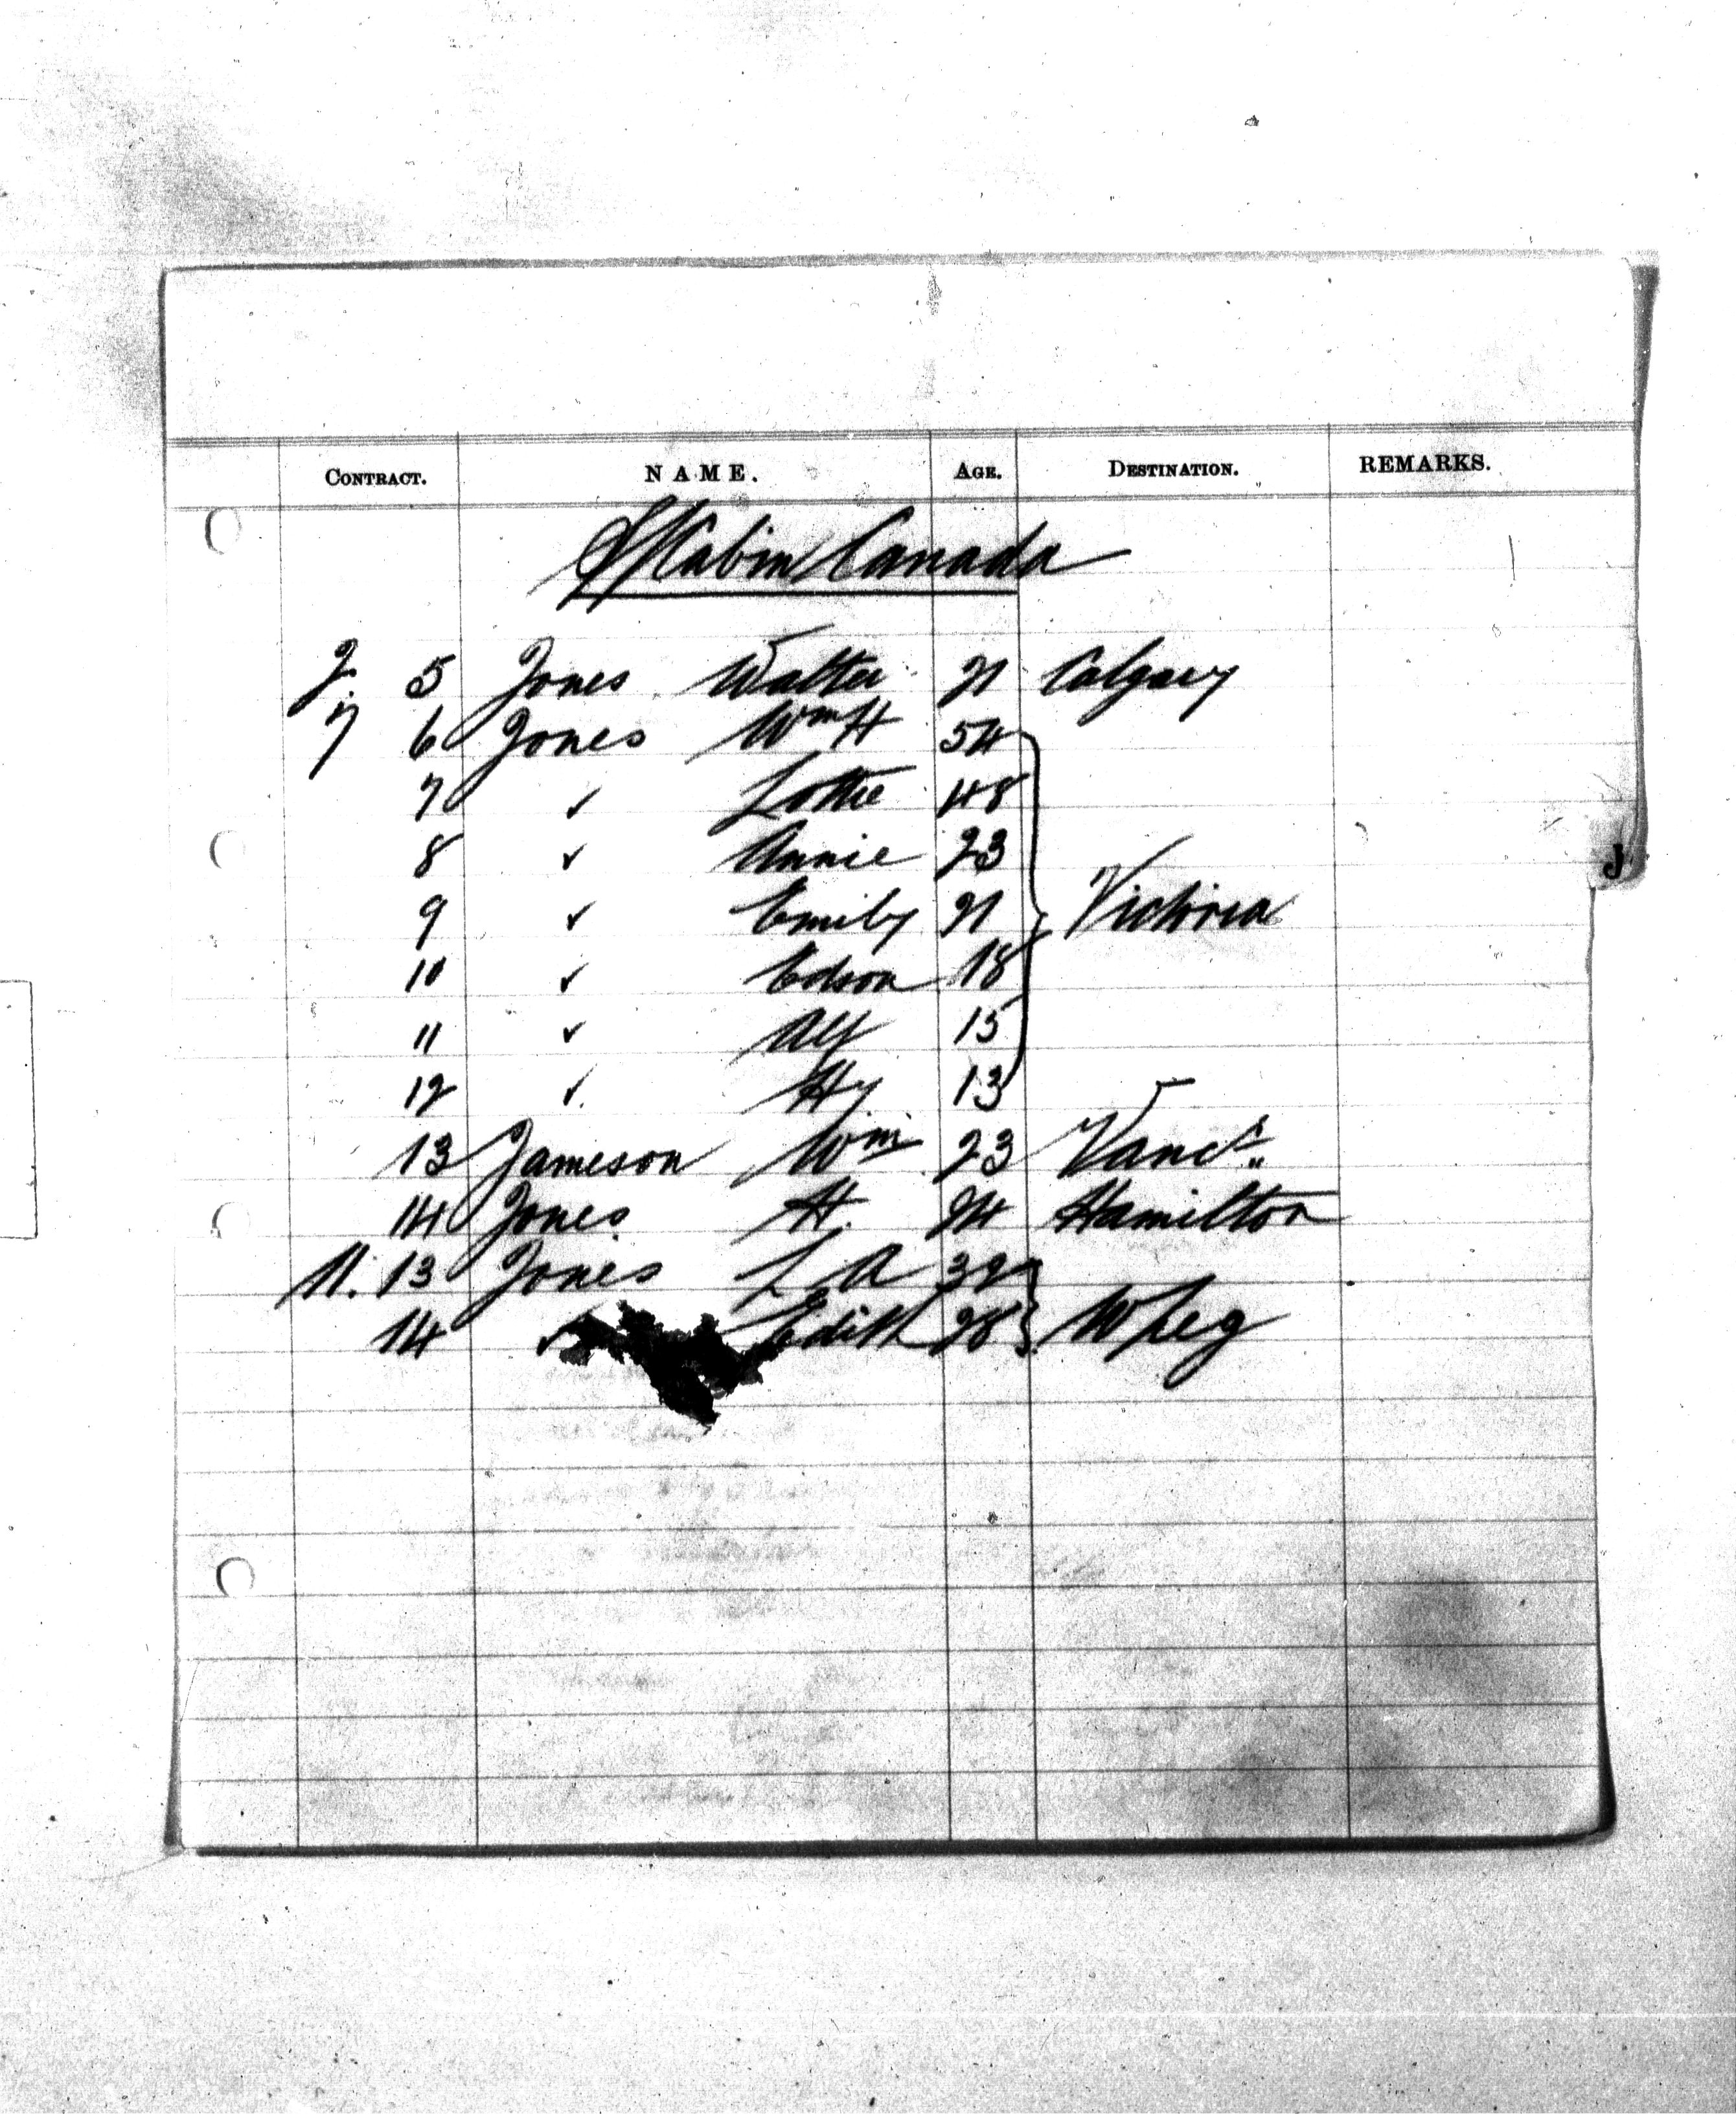 CONTRACT. NAME. AGE. DESTINATION. REMARKS.
Cabin Canada
2. 5 Jones Walter 21 Calgary
7 6 Jones Wm H 54
7 ✓ Lottie 48
8 ✓ Annie 23
9 ✓ Emily 21 Victoria
10 ✓ Edson 18
11 ✓ Alf 15
12 ✓ Hy 13
13 Jameson Wm 23 Vancr
14 Jones H. 24 Hamilton
11. 13 Jones L A 32
14 ✓ Edith 28 Wpeg
J